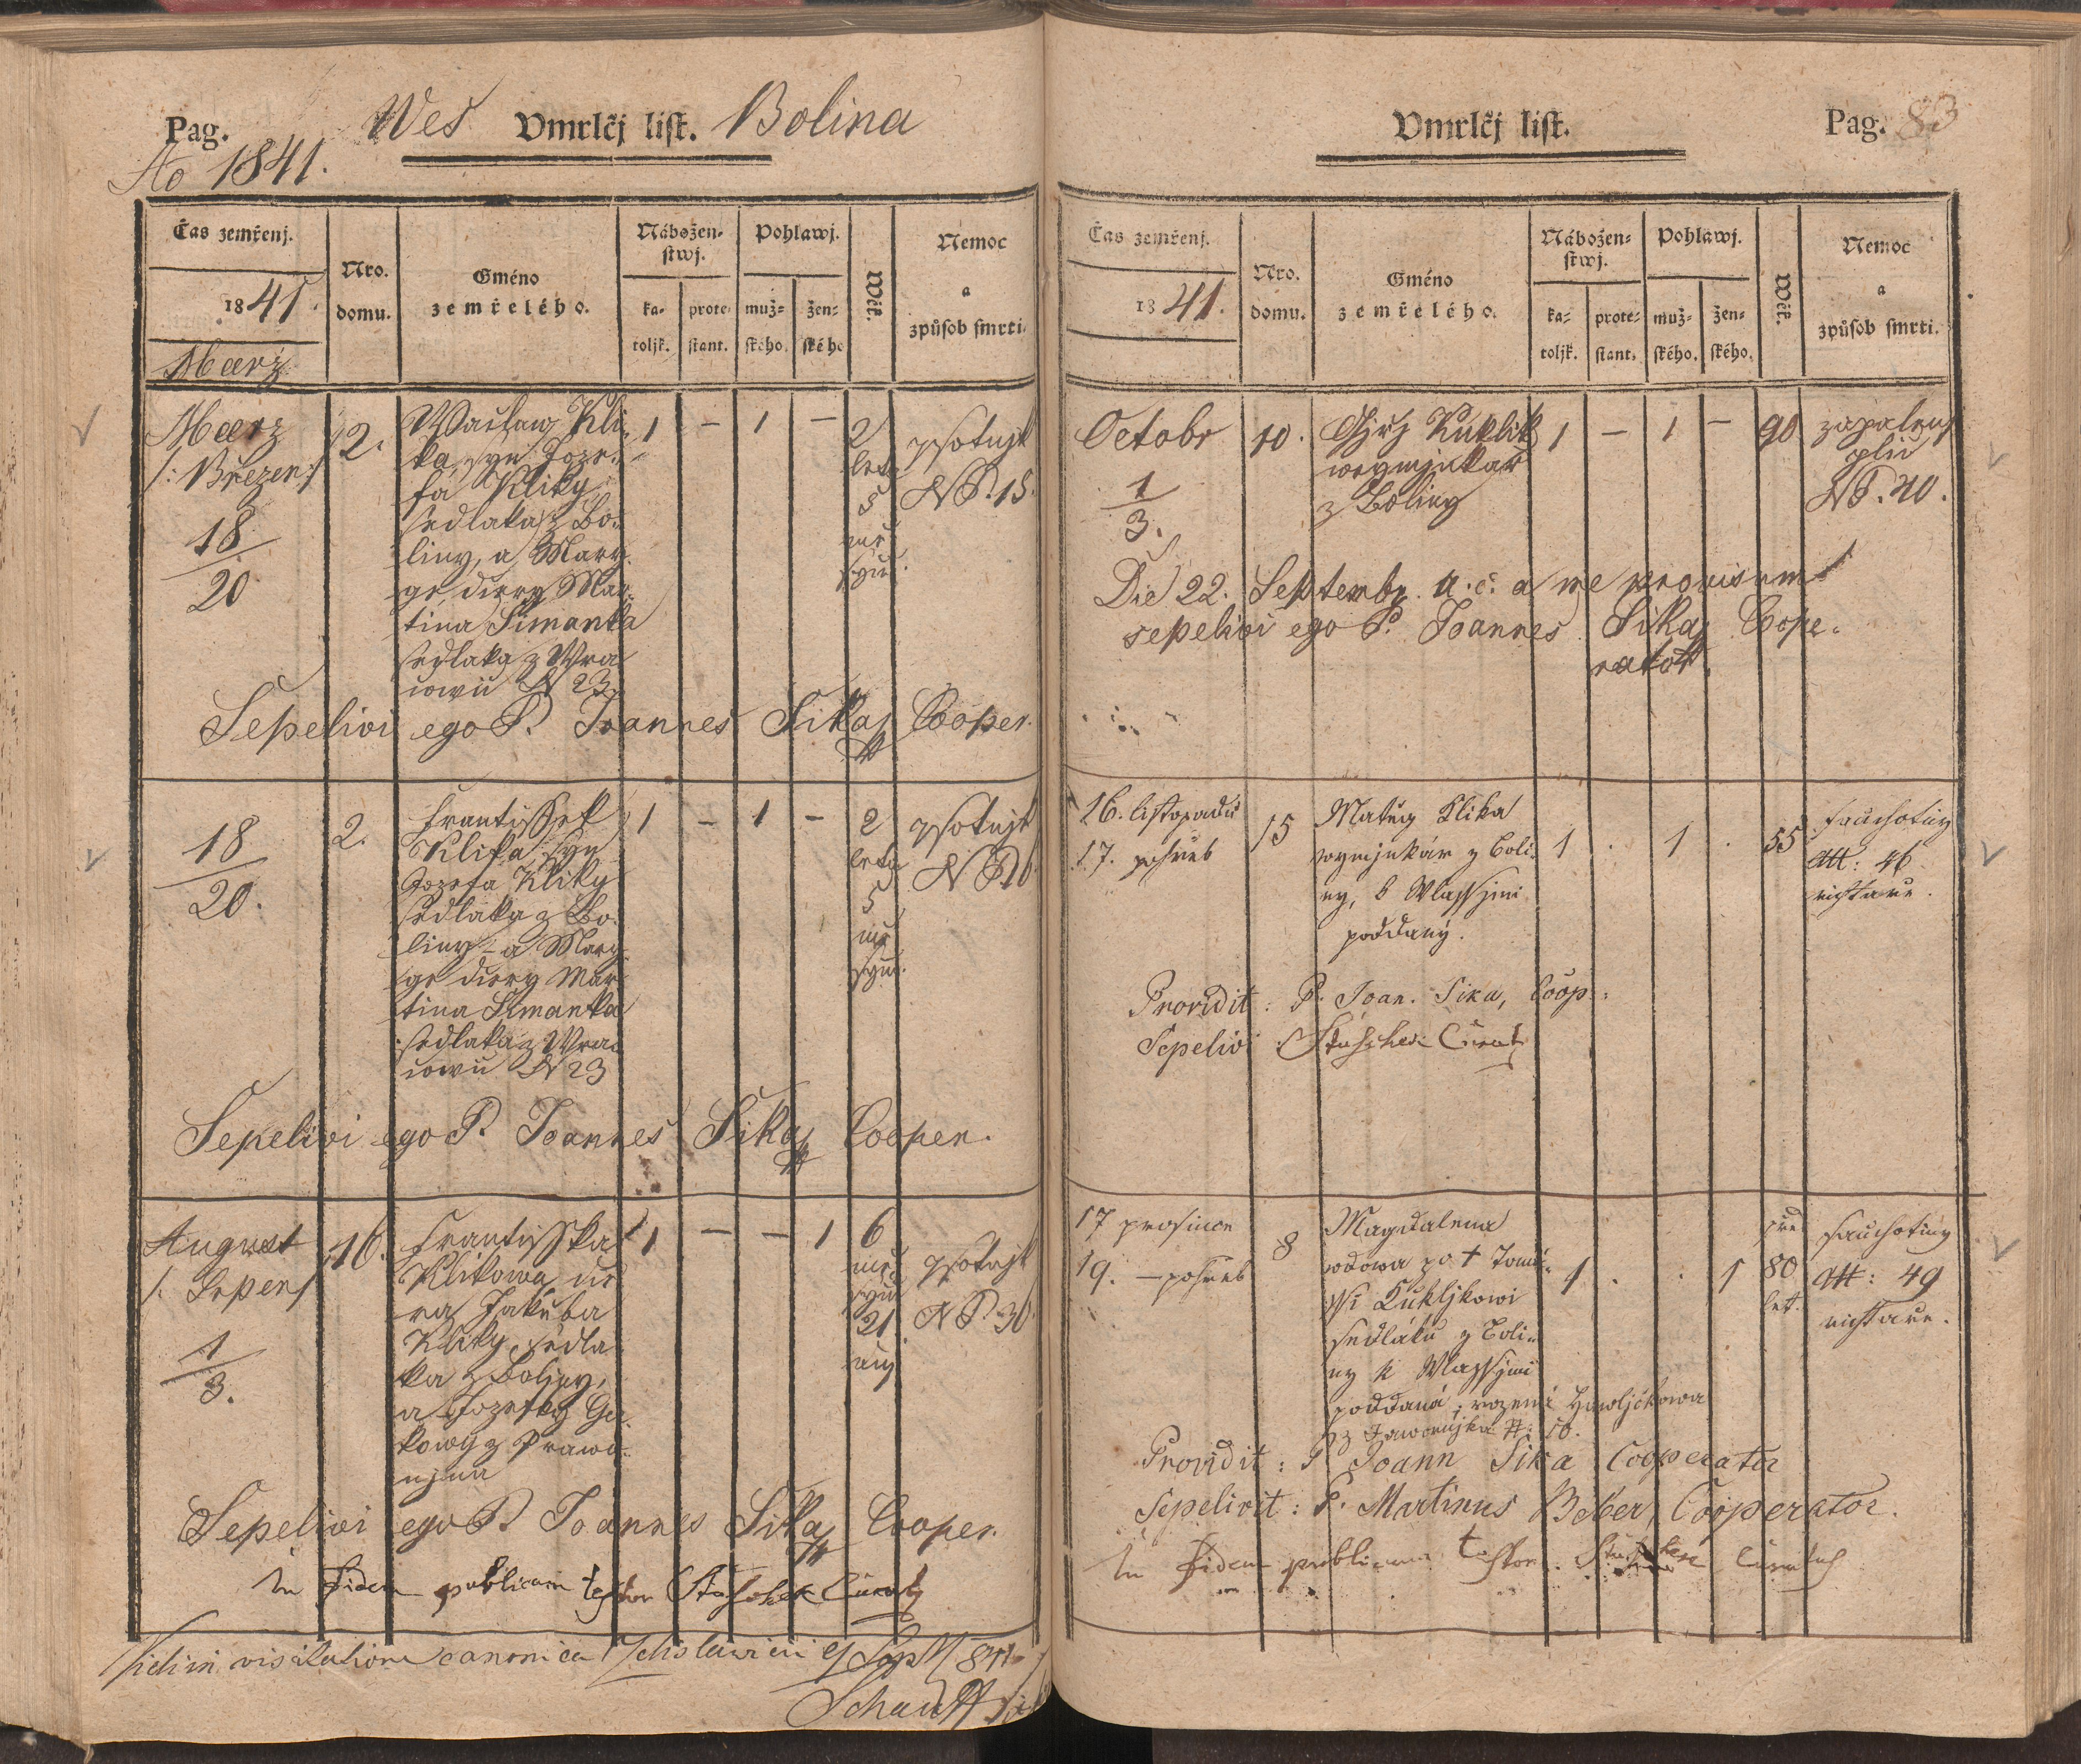 Pag. Wes Vmrlčj liſt. Bolina
Ao 1841.
Čas zemřenj.
1841.
Maerz
Nro. domu.
Gméno
zemřelého.
Nábožen-
ſtwj.
ka-
toljk.
prote-
ſtant.
Pohlawj.
muž-
ſkého.
žen-
ſkého
Wěk.
Nemoc
a
způſob ſmrti.
Maerz
/: Březen :/
18/20
2.
Waclaw Kli-
ka, syn Joze-
fa Kliky
sedlaka z Bo-
liny, a Mary-
ge dcery Mar-
tina Simanka
sedlaka z Wra-
cowic N 23.
1 – 1 –
2
leta
5
me-
sycu.
psotnjk
N P. 15.
Sepelivi ego P. Joannes Sika Cooper.
18/20.
2.
Frantissek
Klika, syn
Jozefa Kliky
sedlaka z Bo-
liny – a Mary-
ge dcery Mar-
tina Simanka
sedlaka z Wra-
N 23
1 – 1 –
2
leta
5
me-
sycu.
psotnjk
N P. 16.
Sepelivi ego P. Joannes Sika Cooper.
August
/: Srpen /
1/3.
16.
Frantisska
Klikowa, dce-
ra Jakuba
Kliky, sedla-
ka z Boliny,
a Jozefky
z Prawo-
njna
1 – – 1
6
me-
sycu
21
dny
psotnjk
N P. 30.
Sepelivi ego P. Joannes Sika Cooper.
In Fidem publicam testor Curat
Vidi in visitatione canonica 9 Sept 841
Vmrlčj liſt. Pag. 83
Čas zemřenj.
1841.
Nro.
domu.
Gméno
zemřelého.
Nábožen-
ſtwj.
ka-
toljk.
prote-
ſtant.
Pohlawj.
muž-
ſkého.
žen-
ſkého.
Wěk.
Nemoc
a
způſob ſmrti.
Octobr
1/3.
10.
Kuklik
weymjnkar
z Boliny
1 – 1 – 90
zapalenj
plic
N P. 40.
Die 22. Septembr. a. c. a me provisum
sepelivi ego P. Joannes Sika Coope-
rator
16. listopadu
17. pohřeb
15
Matěg Klika
weymjnkár z Boli-
ny, k Wlassimi
poddaný.
1 . 1 . 55
sauchotiny
Att: 46
Providit: P. Joan. Sika, Coop:
Sepelivi Curat
17 prosince
19. – pohřeb
8
Magdalena
wdowa po † Tomá-
ssi Kukljkowi
sedláku z Boli-
ny k Wlassimi
poddaná, rozená Hawljčkowa
z
1 . . 1
80
let.
sauchotiny
Att: 49
Providit: P Joann Sika Cooperator
Sepelivit: P. Martinus Cooperator.
In Fidem publicam testor